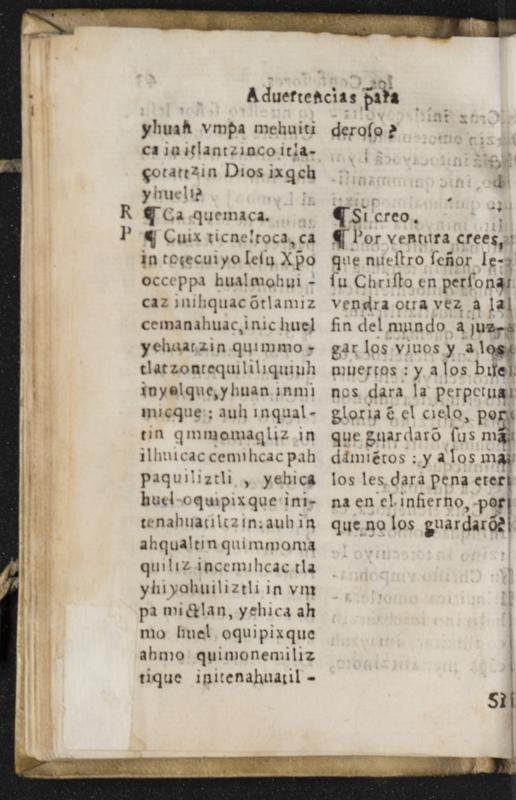 Aduertencias p̃ara
yhuan vmpa mehuiti
ca in itlantzinco itla-
çotattzin Dios ixqch
yhueli?
R ¶ Ca quemaca.
P ¶ Cuix ticneltoca, ca
in totecuiyo Iesu Xp̃o
occeppa hualmohui-
caz inihquac õtlamiz
cemanahuac, inic huel
yehuatzin quimmo-
tlatzontequililiquiuh
inyolque, yhuan inmi
micque; auh inqual-
tin qmmomaqliz in
ilhuicac cemihcac pah
paquiliztli, yehica
huel oquipixque ini-
tenahuatiltzin: auh in
ahqualtin quimmoma
quiliz incemihcac tla
yhiyohuiliztli in vm
pa mictlan, yehica ah
mo huel oquipixque
ahmo quimonemiliz
tique initenahuatil-
deroso?
¶ Si creo.
¶ Por ventura crees,
que nuestro señor Ie-
su Christo en persona
vendra otra vez a la
fin del mundo a juz-
gar los viuos y a los
muertos: y a los bue
nos dara la perpetua
gloria ẽ el cielo, por
que guardarõ sus mã
damiẽtos: y a los ma
los les dara pena eter
na en el infierno, por
que no los guardarõ?